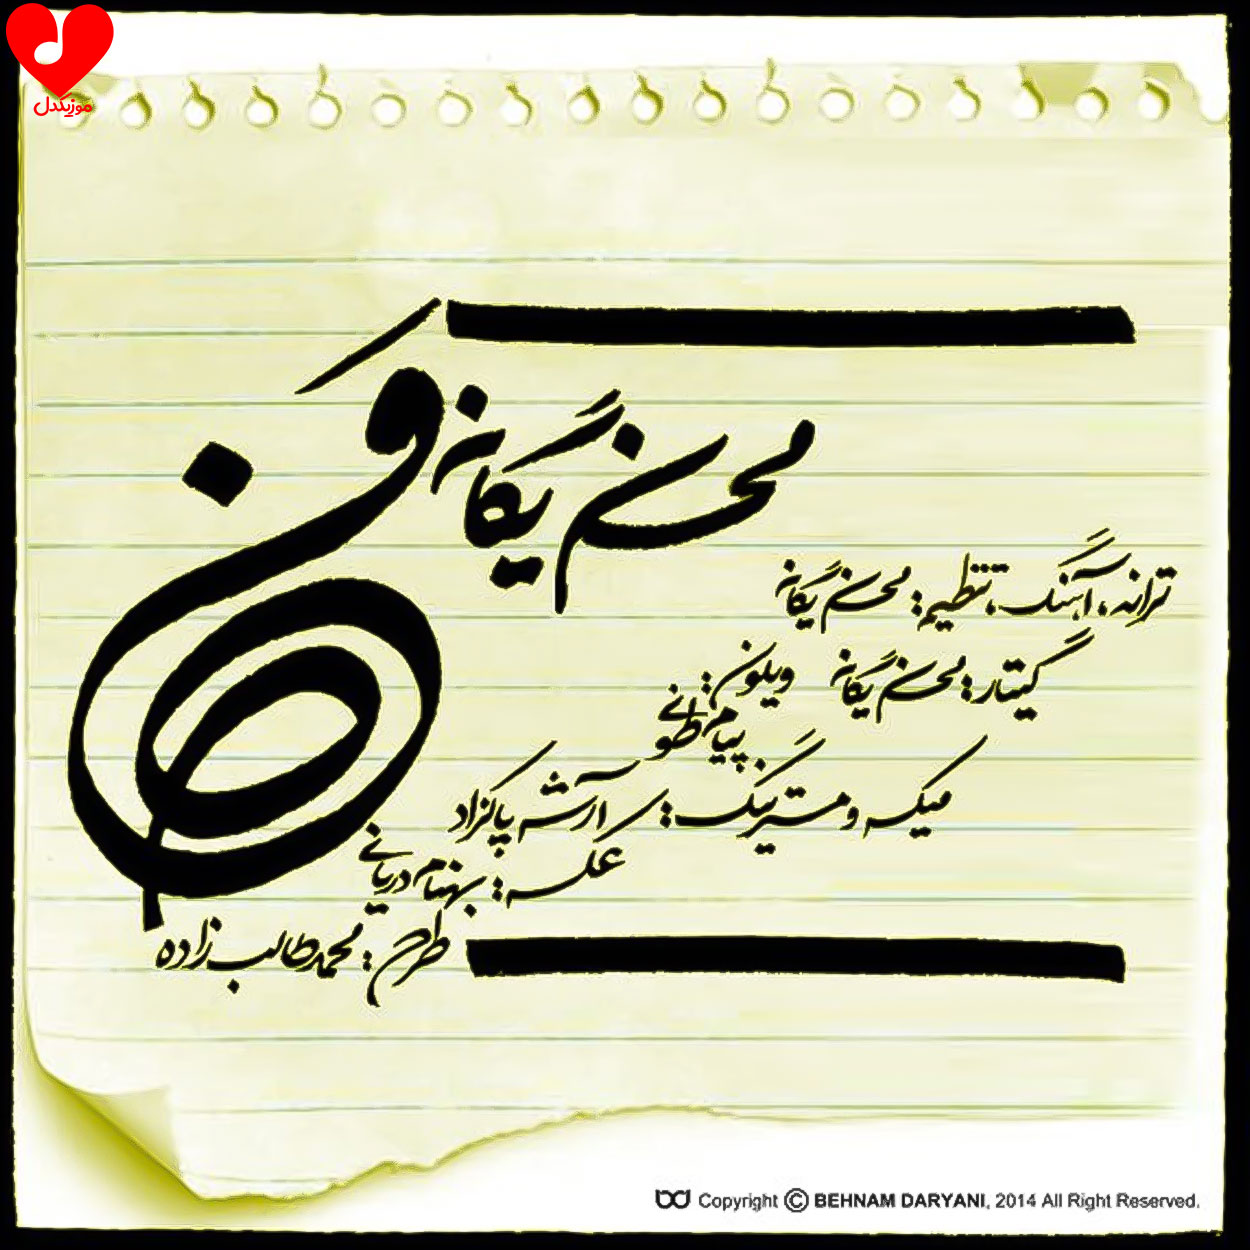 موزیکدل
محسن یگانه
ترانه، آهنگ، تنظیم: محسن یگانه
گیتار: محسن یگانه ویلون:
پیام طونی
میکس و مسترینگ: آرش پاکزاد
عکس: بهنام دریانی
طرح: محمد طالب زاده
bd Copyright © BEHNAM DARYANI, 2014 All Right Reserved.